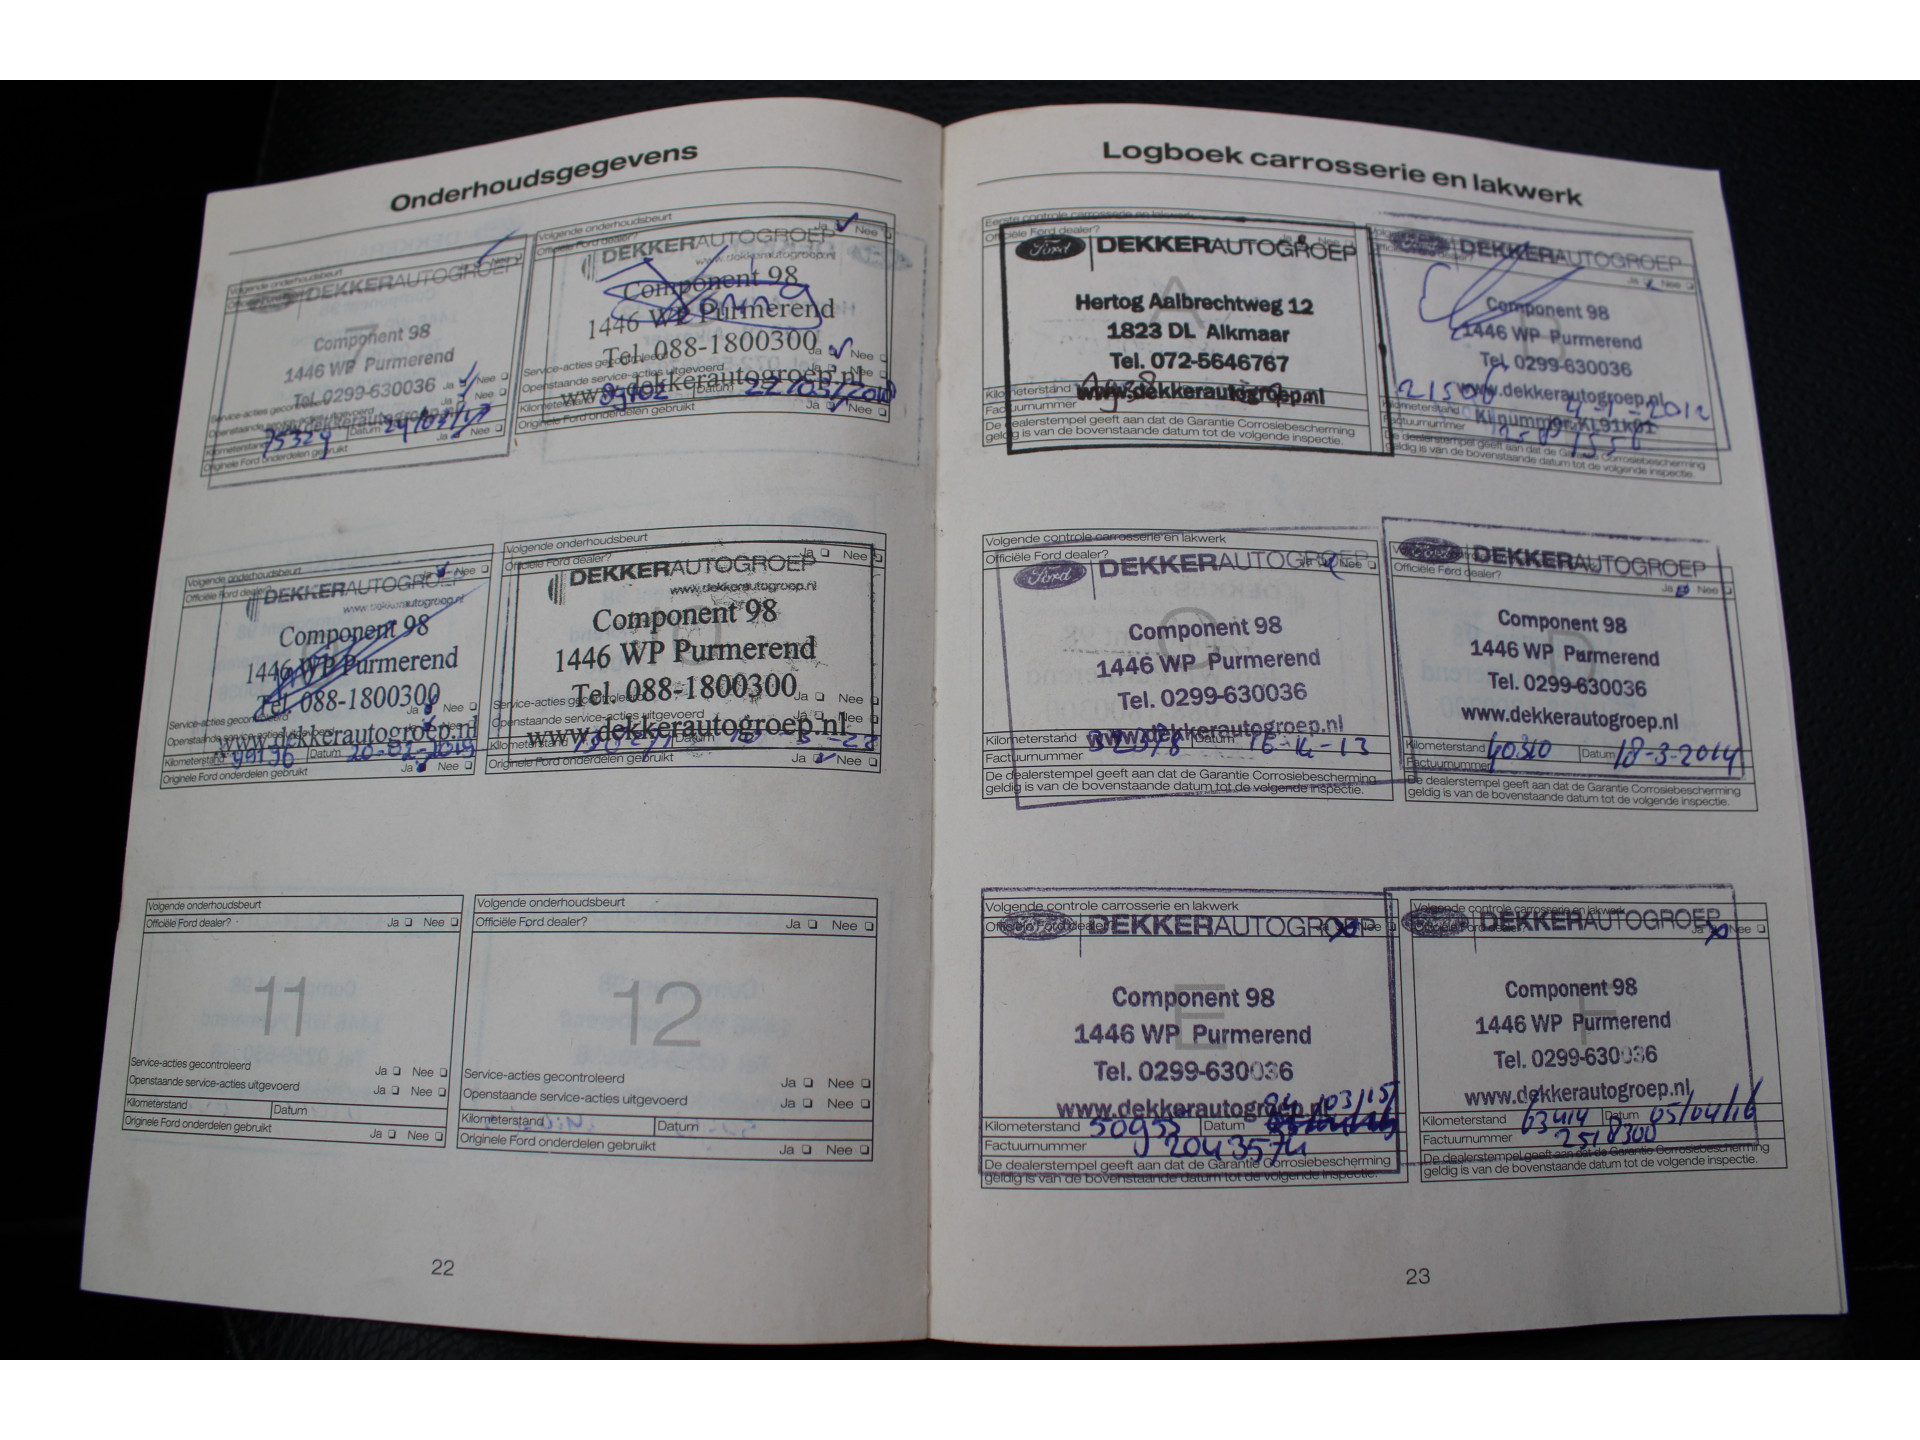 Onderhoudsgegevens
Volgende onderhoudsbeurt
DEKKERAUTOGROEP
Nee
Component 98
1446 WP Purmerend
Tel. 0299-630036
Ja Nee
Service-acties gecontroleerd
Ja Nee
Openstaande service-acties uitgevoerd
www.dekkerautogroep.nl
Kilometerstand 75324 Datum 24/03/17
Originele Ford onderdelen gebruikt Ja Nee
Volgende onderhoudsbeurt
Officiële Ford dealer? Ja Nee
DEKKERAUTOGROEP
www.dekkerautogroep.nl
Component 98
1446 WP Purmerend
Tel. 088-1800300
Service-acties gecontroleerd Ja Nee
Openstaande service-acties uitgevoerd
www.dekkerautogroep.nl
Kilometerstand Datum 22/03/2018
Originele Ford onderdelen gebruikt Ja Nee
Volgende onderhoudsbeurt
Officiële Ford dealer? Ja Nee
DEKKERAUTOGROEP
www.dekkerautogroep.nl
Component 98
1446 WP Purmerend
Tel. 088-1800300
Service-acties gecontroleerd Ja Nee
Openstaande service-acties uitgevoerd Ja Nee
www.dekkerautogroep.nl
Kilometerstand 99196 Datum 20-02-2019
Originele Ford onderdelen gebruikt Ja Nee
Volgende onderhoudsbeurt
Officiële Ford dealer? Ja Nee
DEKKERAUTOGROEP
www.dekkerautogroep.nl
10
Component 98
1446 WP Purmerend
Tel. 088-1800300
Service-acties gecontroleerd Ja Nee
Openstaande service-acties uitgevoerd Ja Nee
www.dekkerautogroep.nl
Kilometerstand Datum
Originele Ford onderdelen gebruikt Ja Nee
Volgende onderhoudsbeurt
Officiële Ford dealer? Ja Nee
11
Service-acties gecontroleerd Ja Nee
Openstaande service-acties uitgevoerd Ja Nee
Kilometerstand Datum
Originele Ford onderdelen gebruikt Ja Nee
Volgende onderhoudsbeurt
Officiële Ford dealer? Ja Nee
12
Service-acties gecontroleerd Ja Nee
Openstaande service-acties uitgevoerd Ja Nee
Kilometerstand Datum
Originele Ford onderdelen gebruikt Ja Nee
22
Logboek carrosserie en lakwerk
Eerste controle carrosserie en lakwerk
Ford DEKKERAUTOGROEP
A
Hertog Aalbrechtweg 12
1823 DL Alkmaar
Tel. 072-5646767
Kilometerstand
www.dekkerautogroep.nl
Factuurnummer
De dealerstempel geeft aan dat de Garantie Corrosiebescherming
geldig is van de bovenstaande datum tot de volgende inspectie.
DEKKERAUTOGROEP
Ja Nee
Component 98
1446 WP Purmerend
Tel. 0299-630036
www.dekkerautogroep.nl
Kilometerstand 4-1-2012
Factuurnummer
De dealerstempel geeft aan dat de Garantie Corrosiebescherming
geldig is van de bovenstaande datum tot de volgende inspectie.
Volgende controle carrosserie en lakwerk
Officiële Ford dealer? Ja Nee
Ford DEKKERAUTOGROEP
C
Component 98
1446 WP Purmerend
Tel. 0299-630036
www.dekkerautogroep.nl
Kilometerstand 32378 Datum 16-14-13
Factuurnummer
De dealerstempel geeft aan dat de Garantie Corrosiebescherming
geldig is van de bovenstaande datum tot de volgende inspectie.
DEKKERAUTOGROEP
Officiële Ford dealer?
Ja Nee
D
Component 98
1446 WP Purmerend
Tel. 0299-630036
www.dekkerautogroep.nl
Kilometerstand 40310 Datum 18-3-2014
Factuurnummer
De dealerstempel geeft aan dat de Garantie Corrosiebescherming
geldig is van de bovenstaande datum tot de volgende inspectie.
Volgende controle carrosserie en lakwerk
Officiële Ford dealer? Nee
DEKKERAUTOGROEP
E
Component 98
1446 WP Purmerend
Tel. 0299-630036
www.dekkerautogroep.nl
Kilometerstand 50955 Datum
Factuurnummer 2043574
De dealerstempel geeft aan dat de Garantie Corrosiebescherming
geldig is van de bovenstaande datum tot de volgende inspectie.
Volgende controle carrosserie en lakwerk
DEKKERAUTOGROEP
Ja Nee
F
Component 98
1446 WP Purmerend
Tel. 0299-630036
www.dekkerautogroep.nl
Kilometerstand 63414 Datum 05/04/16
Factuurnummer 2518300
De dealerstempel geeft aan dat de Garantie Corrosiebescherming
geldig is van de bovenstaande datum tot de volgende inspectie.
23